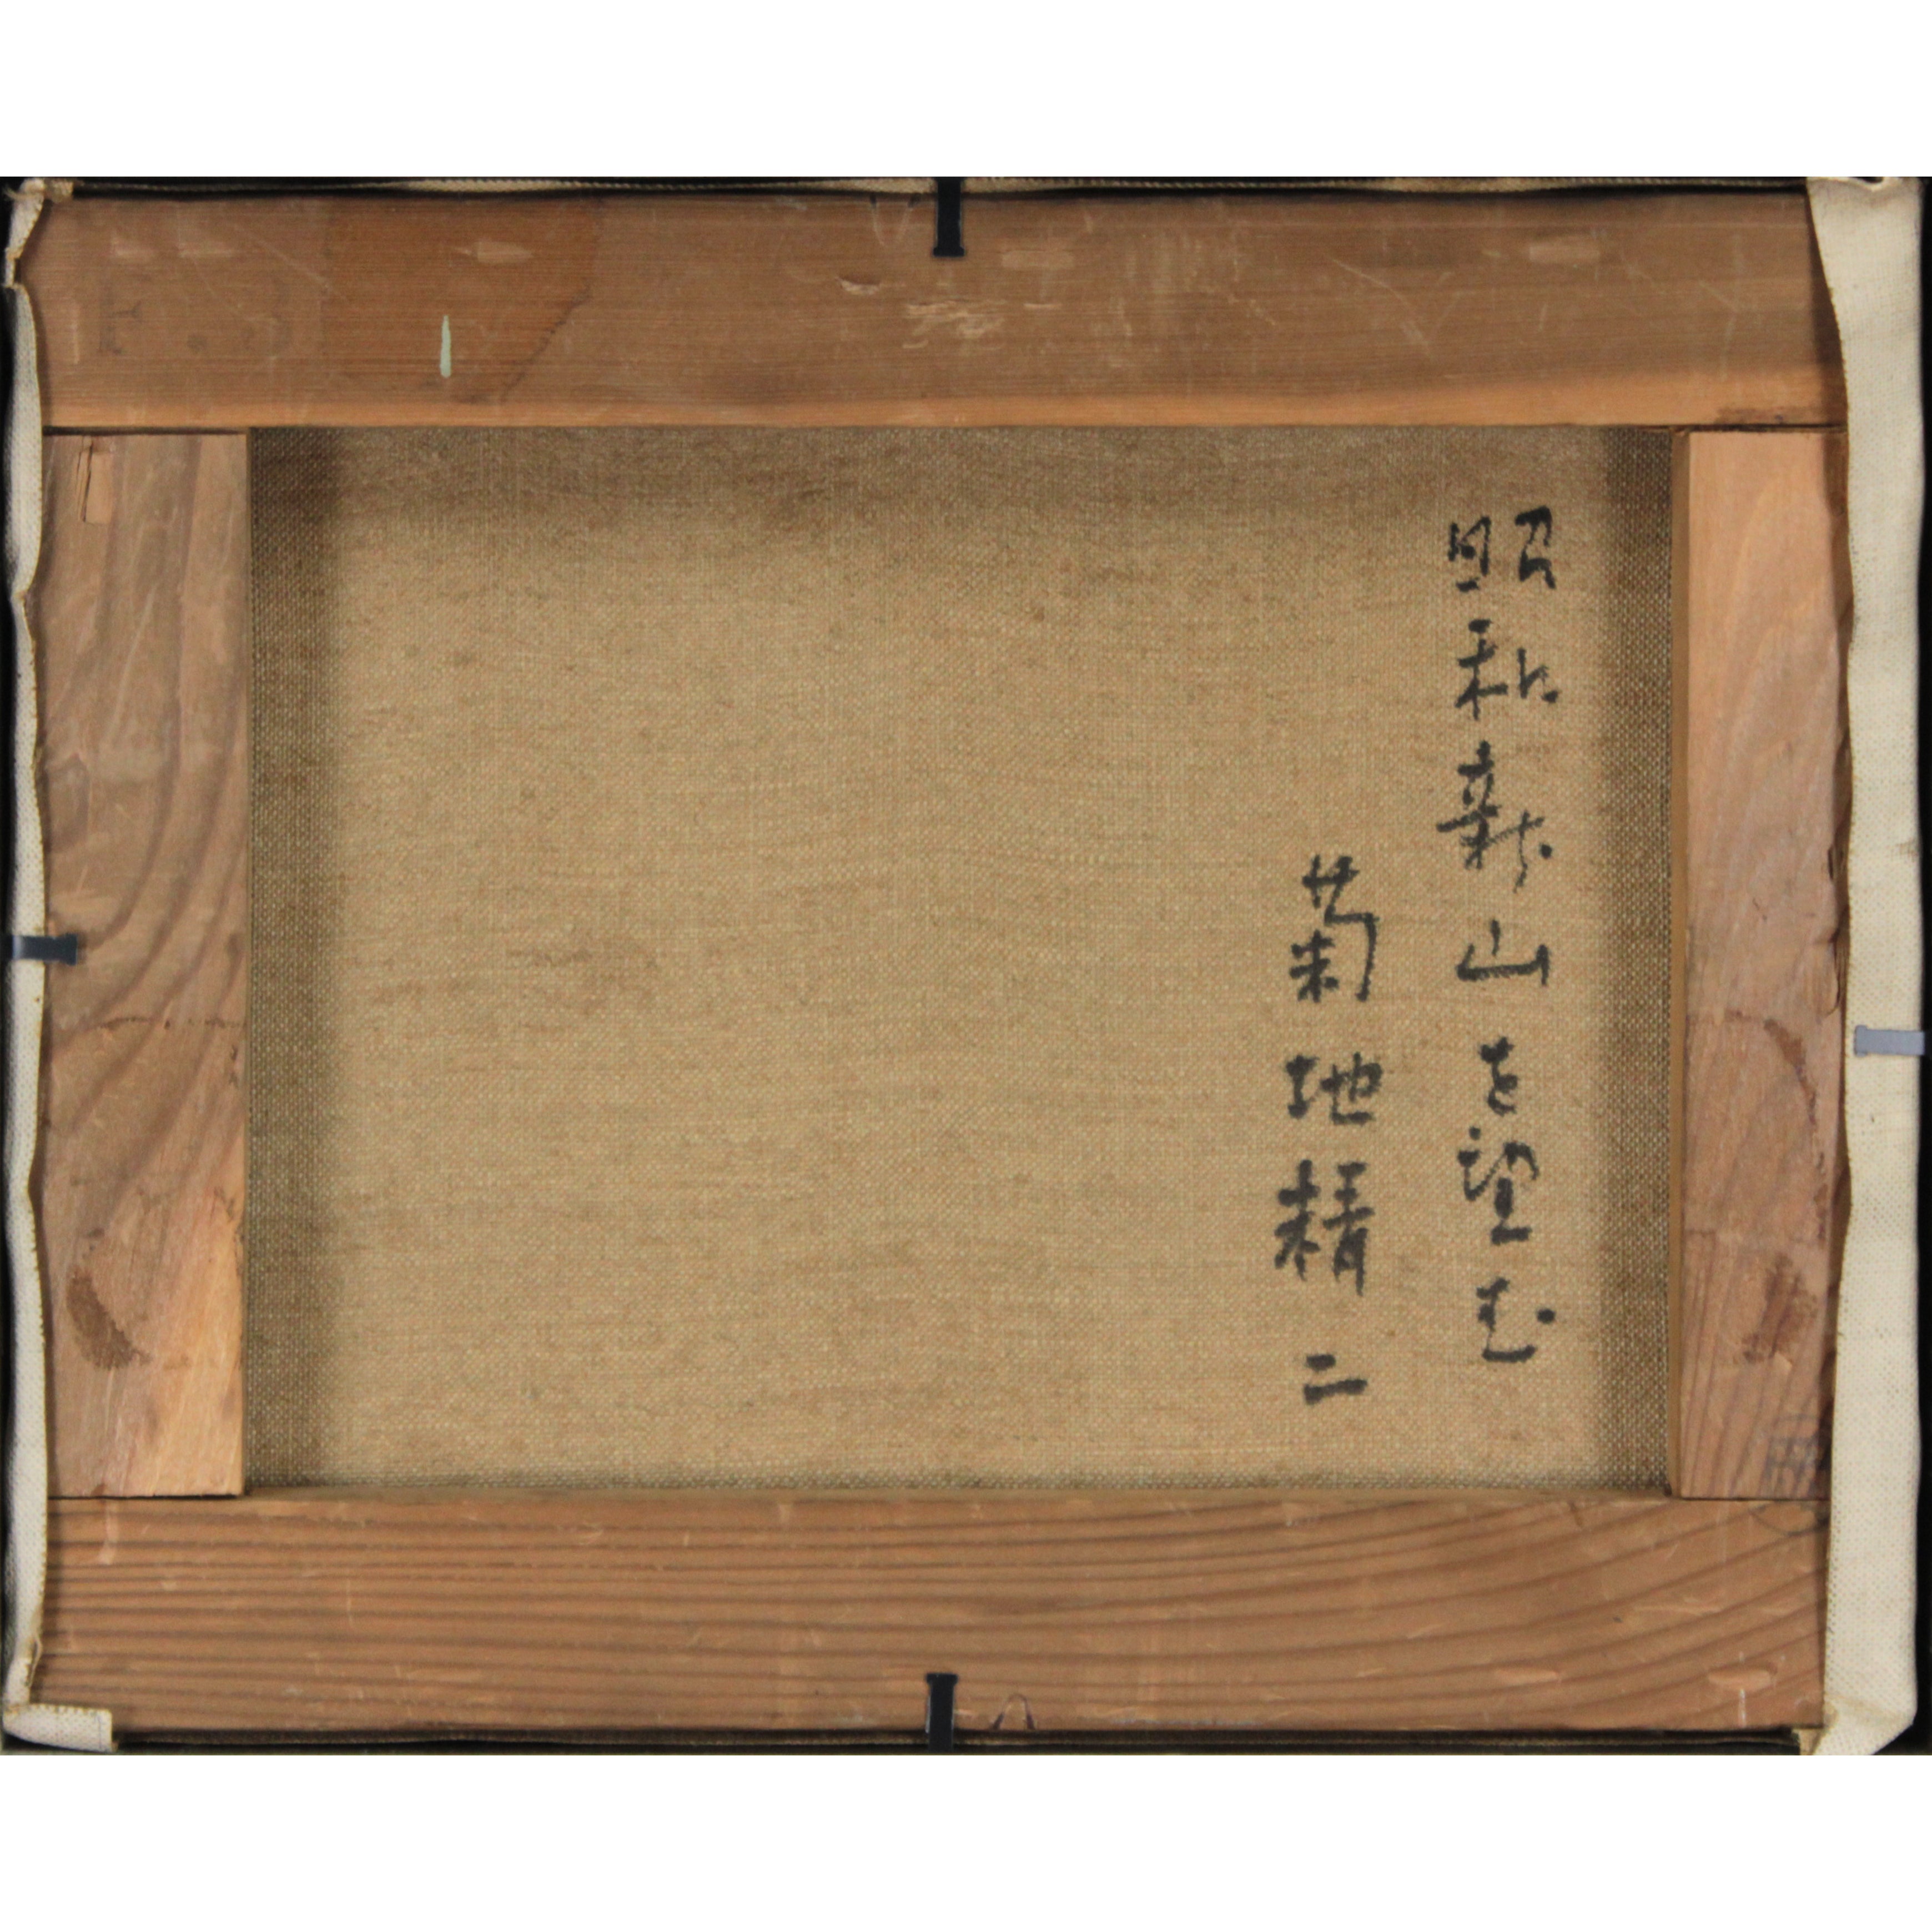 昭和新山を望む
菊地精二